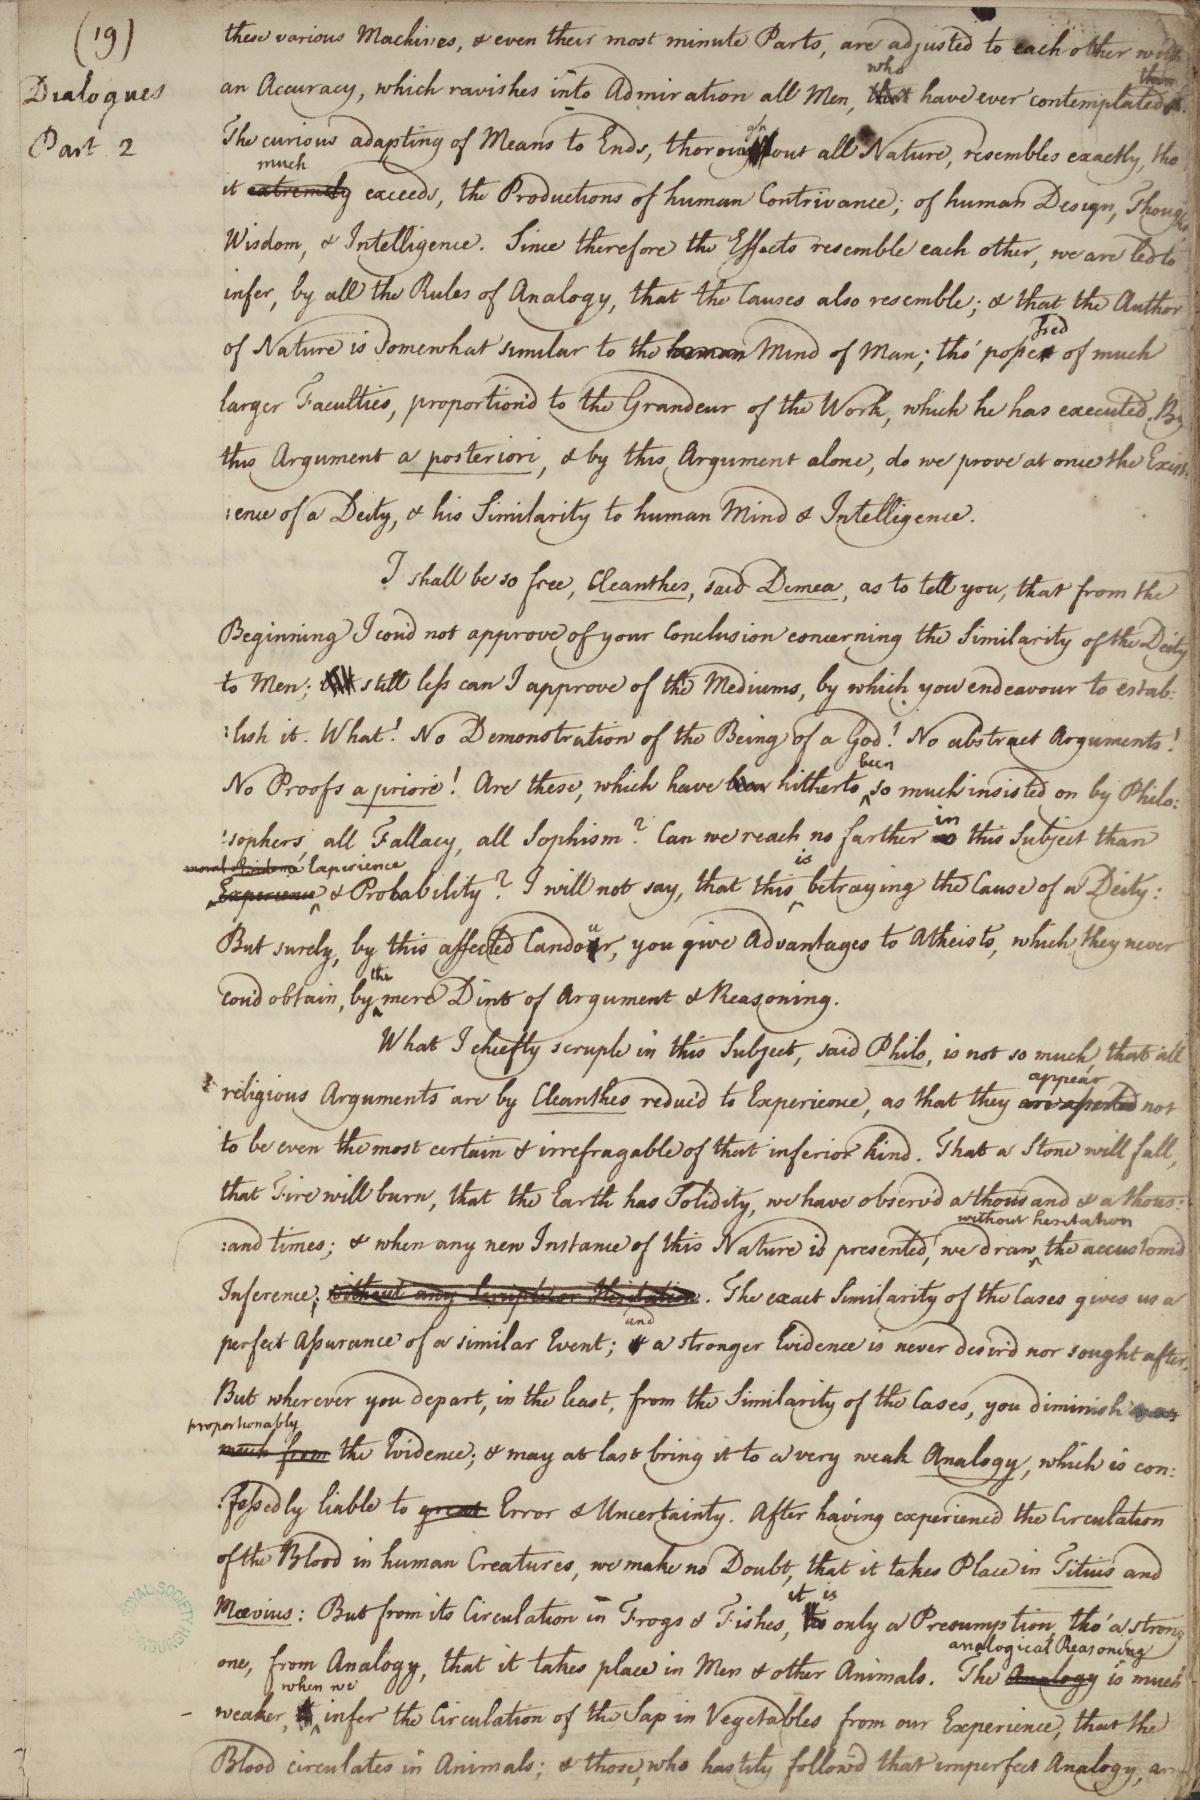 (19)
Dialogues
Part 2
these various Machines, & even their most minute Parts, are adjusted to each other with
who them
an Accuracy, which ravishes into Admiration all Men, that have ever contemplated
The curious adapting of Means to Ends, thorough out all Nature, resembles exactly, tho
much
it extremely exceeds, the Productions of human Contrivance; of human Design, Thought
Wisdom, & Intelligence. Since therefore the Effects resemble each other, we are led to
infer, by all the Rules of Analogy, that the Causes also resemble; & that the Author
of Nature is somewhat similar to the human Mind of Man; tho' possessed of much
larger Faculties, proportion'd to the Grandeur of the Work, which he has executed. By
this Argument a posteriori, & by this Argument alone, do we prove at once the Exist:
:ence of a Deity, & his Similarity to human Mind & Intelligence.
I shall be so free, Cleanthes, said Demea, as to tell you, that from the
Beginning I coud not approve of your Conclusion concerning the Similarity of the Deity
to Men; still less can I approve of the Mediums, by which you endeavour to estab:
:lish it. What! No Demonstration of the Being of a God! No abstract Arguments!
been
No Proofs a priori! Are these, which have been hitherto so much insisted on by Philo:
in
:sophers, all Fallacy, all Sophism? Can we reach no farther this Subject than
moral Evidence Experience is
Experience & Probability? I will not say, that this betraying the Cause of a Deity:
But surely, by this affected Candour, you give Advantages to Atheists, which they never
the
coud obtain, by mere Dint of Argument & Reasoning.
What I chiefly scruple in this Subject, said Philo, is not so much, that all
appear
religious Arguments are by Cleanthes reduc'd to Experience, as that they are asserted not
to be even the most certain & irrefragable of that inferior kind. That a Stone will fall,
that Fire will burn, that the Earth has Solidity, we have observ'd a thousand & a thous:
without hesitation
:and times; & when any new Instance of this Nature is presented, we draw the accustom'd
Inference; without any Scruple or Hesitation. The exact Similarity of the Cases gives us a
and
perfect Assurance of a similar Event; & a stronger Evidence is never desir'd nor sought after.
But wherever you depart, in the least, from the Similarity of the Cases, you diminish
proportionably
much from the Evidence; & may at last bring it to a very weak Analogy, which is con:
:fessedly liable to great Error & Uncertainty. After having experienc'd the Circulation
of the Blood in human Creatures, we make no Doubt, that it takes Place in Titius and
it is
Mævius: But from its Circulation in Frogs & Fishes, only a Presumption, tho' a strong
analogical Reasoning
one, from Analogy, that it takes place in Men & other Animals. The Analogy is much
when we
weaker, infer the Circulation of the Sap in Vegetables from our Experience, that the
Blood circulates in Animals; & those, who hastily follow'd that imperfect Analogy, are
ROYAL SOCIETY EDINBURGH